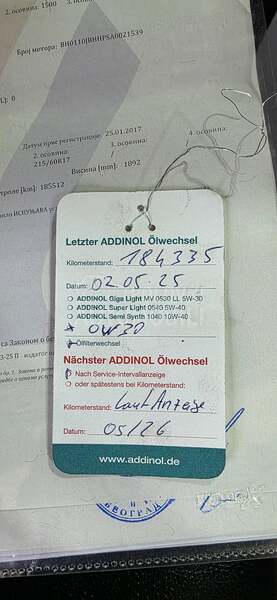 2. осовина: 1500
3. осовина:
Број мотора: BH0110JBHHPSA0021539
0
Датум прве регистрације: 25.01.2017
2. осовина: 3. осовина: 4. осовина:
215/60R17 /
Висина [mm]: 1892
[km]: 185512
ИСПУЊАВА
Letzter ADDINOL Ölwechsel
Kilometerstand: 184335
Datum: 02.05.25
ADDINOL Giga Light MV 0530 LL 5W-30
ADDINOL Super Light 0540 5W-40
ADDINOL Semi Synth 1040 10W-40
0W20
Ölfilterwechsel
Nächster ADDINOL Ölwechsel
Nach Service-Intervallanzeige
oder spätestens bei Kilometerstand:
Kilometerstand: Laut Anzeige
Datum: 05/26
www.addinol.de
са Законом о
БЕОГРАД